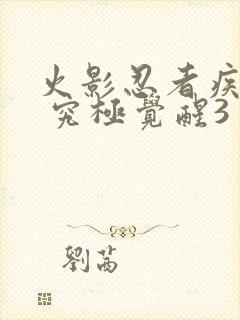 火影忍者疾
究極覺醒3
劉茜